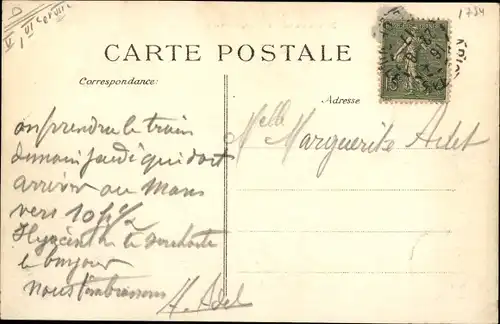 1784
CARTE POSTALE
Correspondance:
Adresse
on prendra le train
demain jeudi qui doit
arriver au Mans
vers 10h 1/2
Hyacinthe te souhaite
le bonjour
nous t'embrassons
A. Adet
Melle Marguerite Adet